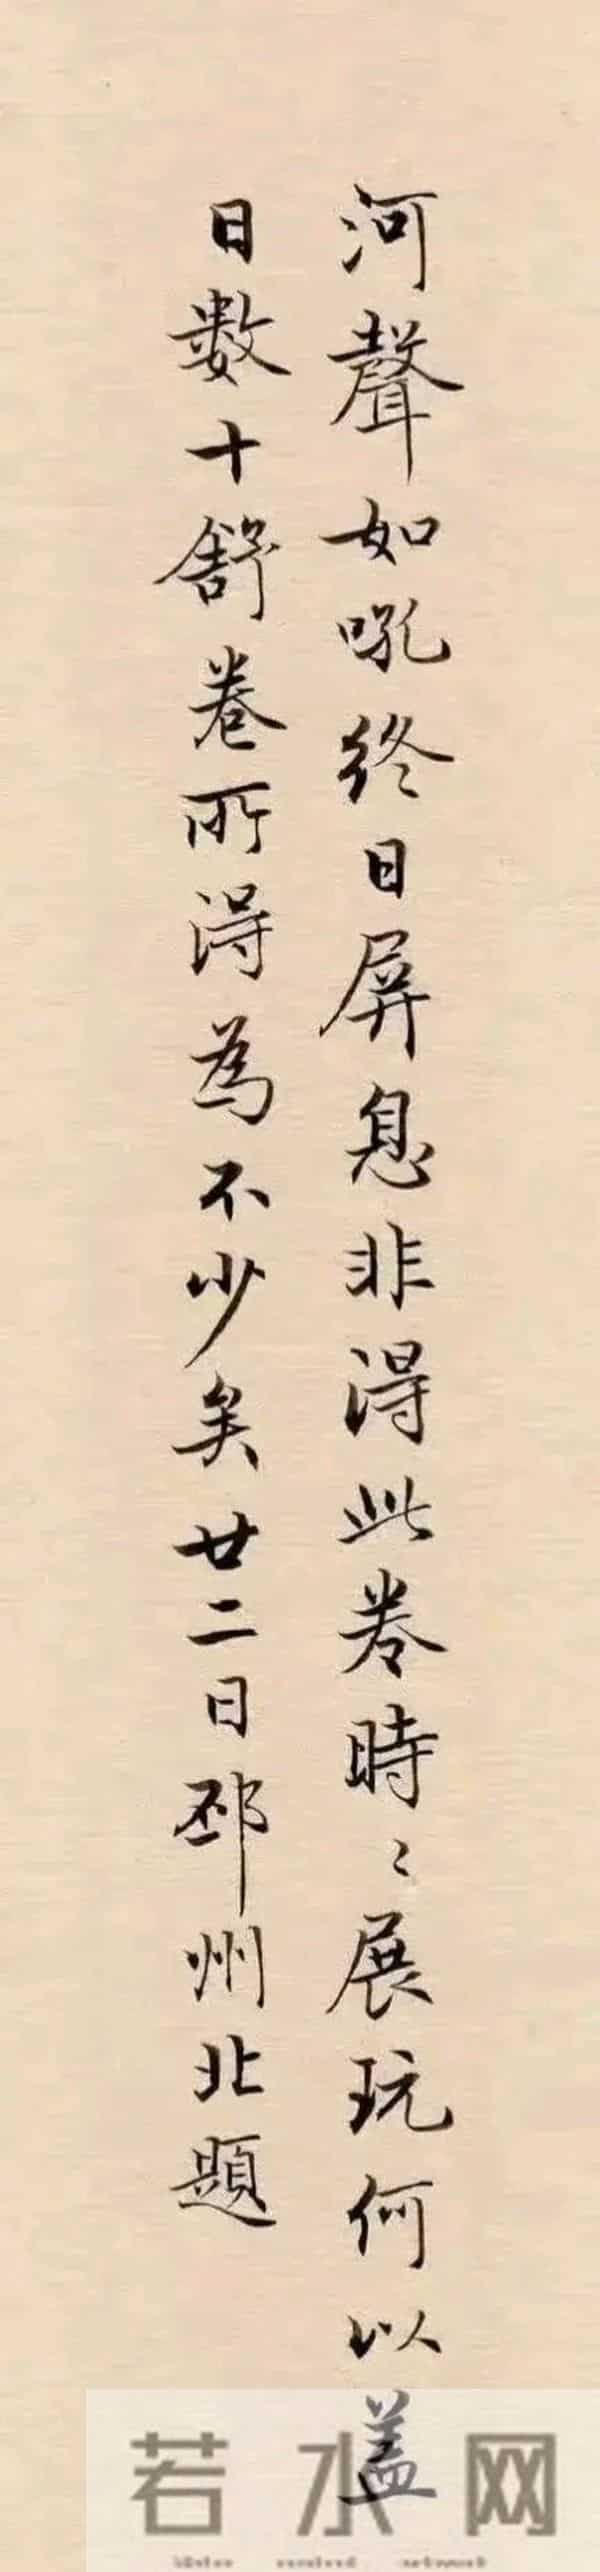 河聲如吼終日屏息非得此卷時〻展玩何以
盖日數十舒卷所得為不少矣廿二日邳州北題
若水网